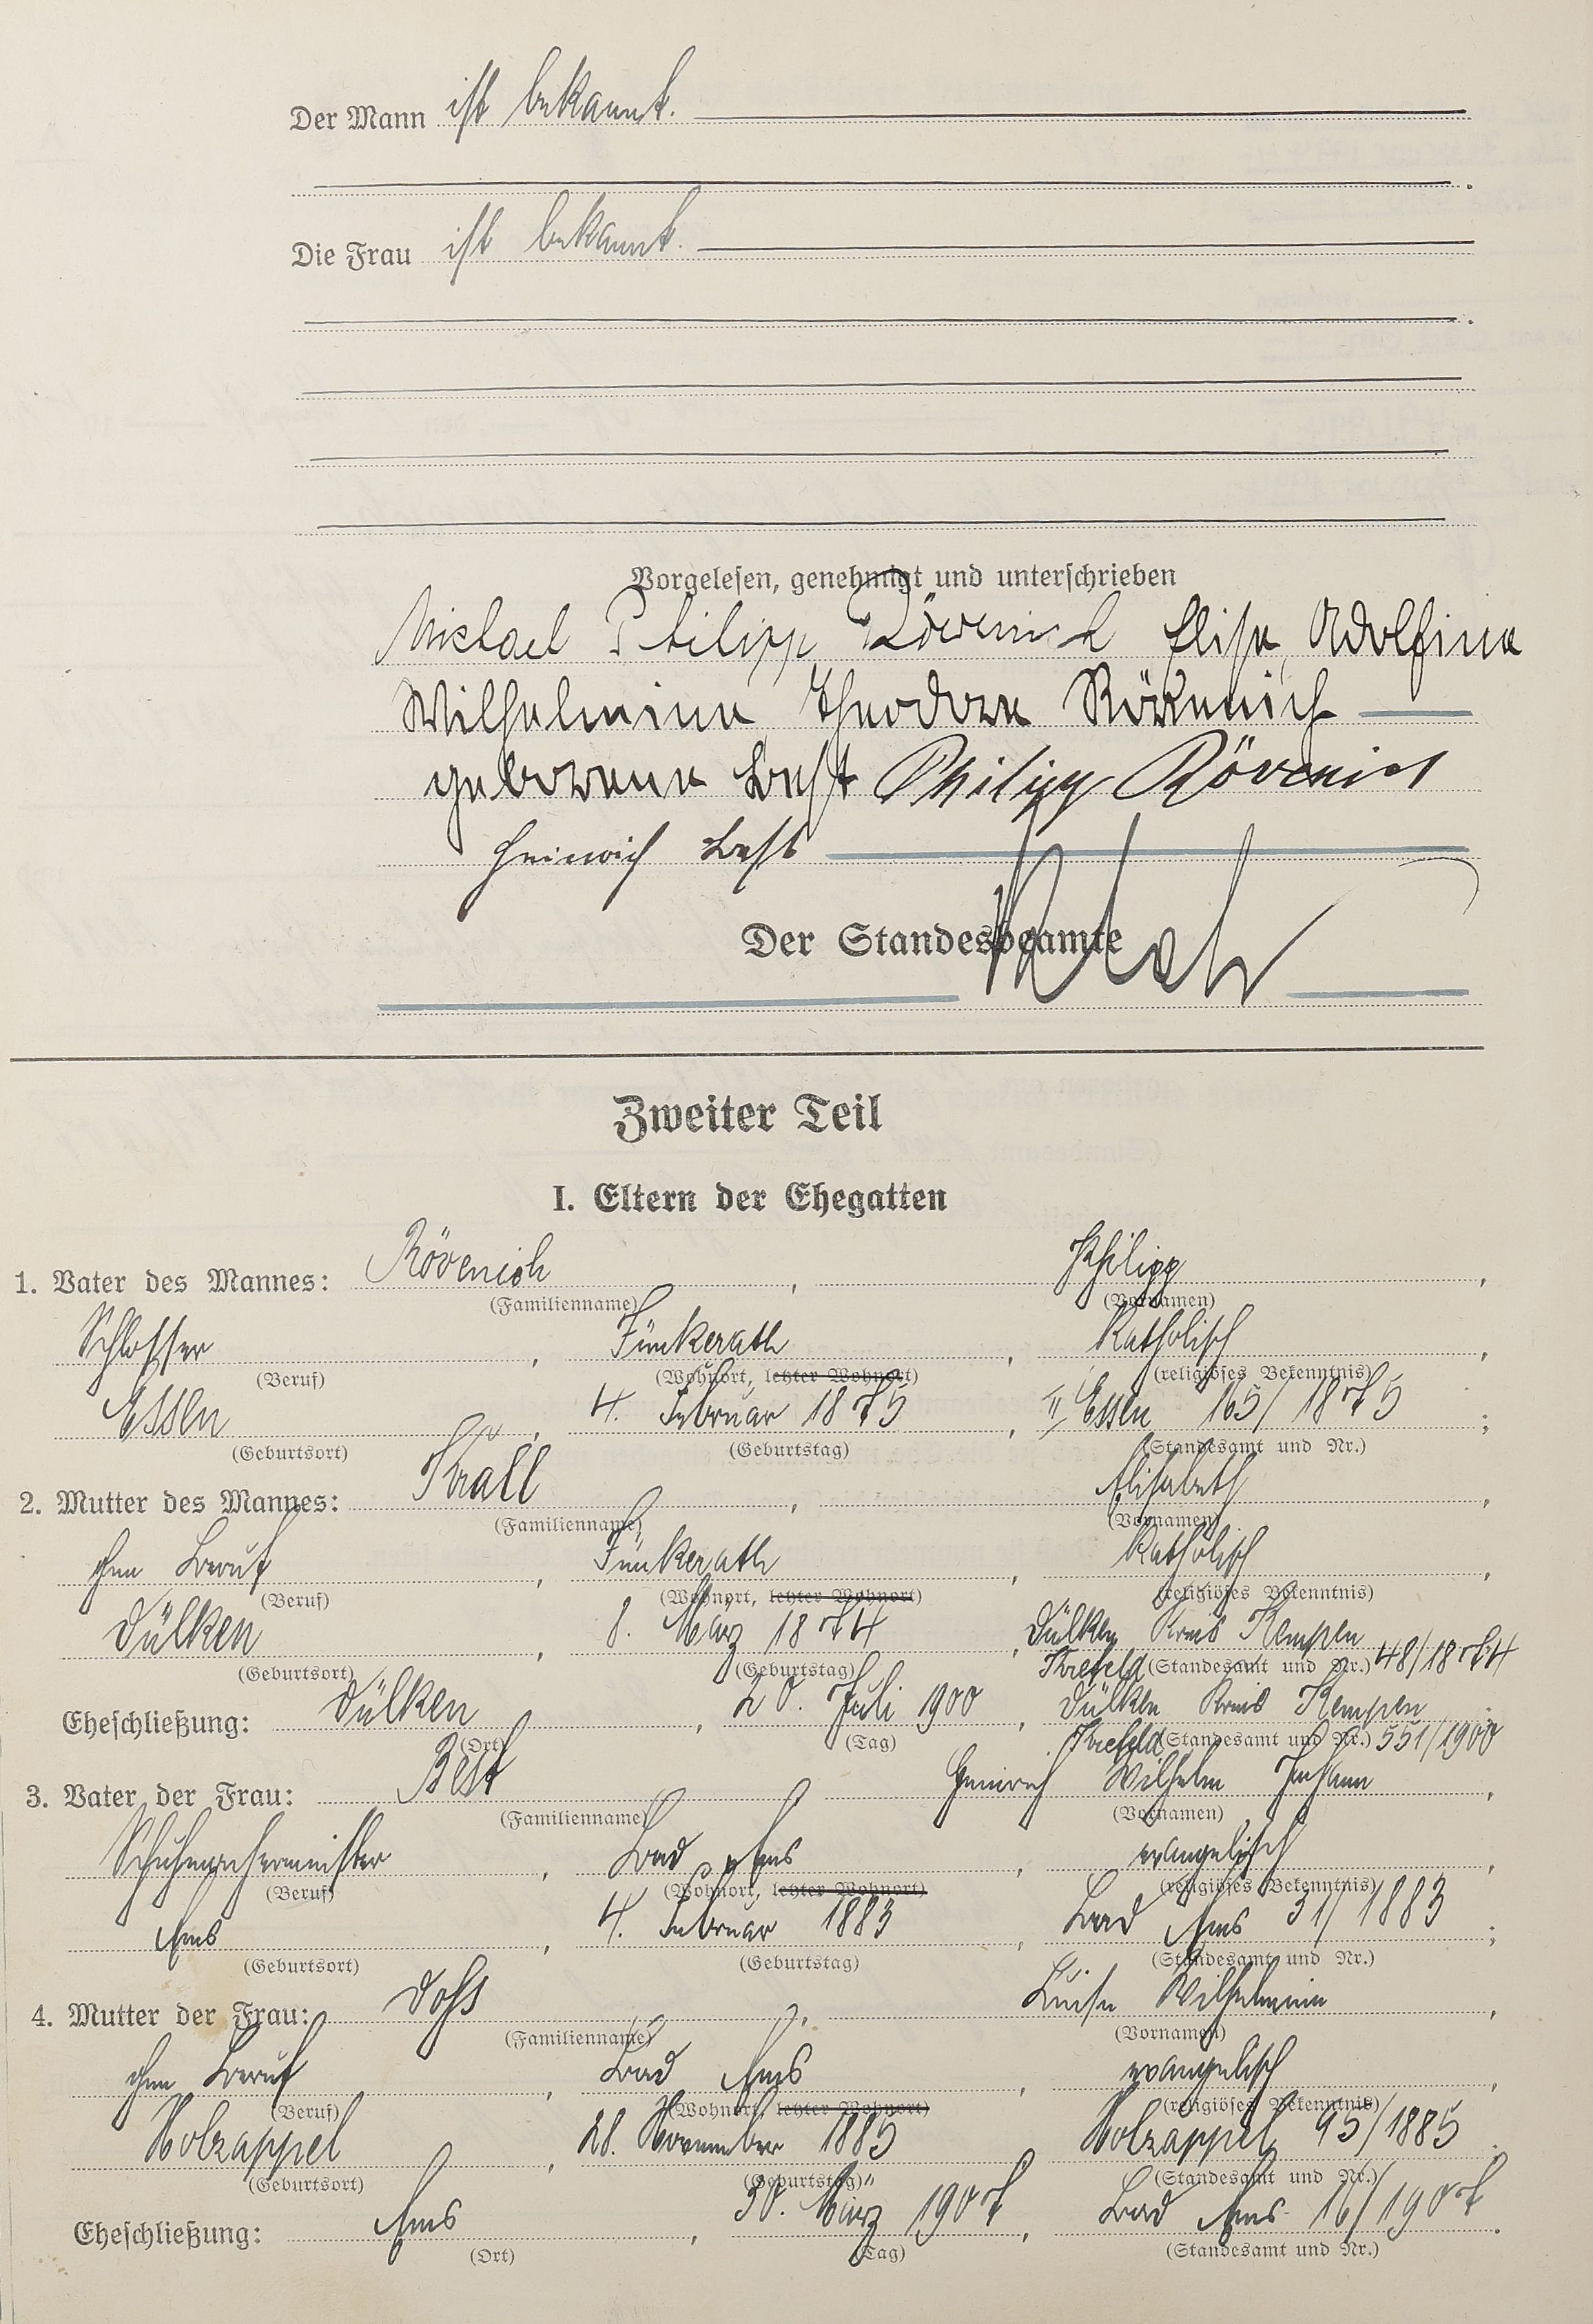 Der Mann ist bekannt.
Die Frau ist bekannt.
Vorgelesen, genehmigt und unterschrieben
Michael Philipp Rövenich Elise Adolfine
Wilhelmine Theodore Rövenich
geborene Best Philipp Rövenich
Heinrich Best
Der Standesbeamte
Zweiter Teil
I. Eltern der Ehegatten
1. Vater des Mannes: Rövenich, Philipp,
(Familienname) (Vornamen)
Schlosser, Jünkerath, Katholisch,
(Beruf) (Wohnort, letzter Wohnort) (religiöses Bekenntnis)
Essen, 4. Februar 1875, Essen 165/1875;
(Geburtsort) (Geburtstag) (Standesamt und Nr.)
2. Mutter des Mannes: Thräll, Elisabeth,
(Familienname) (Vornamen)
ohne Beruf, Jünkerath, Katholisch,
(Beruf) (Wohnort, letzter Wohnort) (religiöses Bekenntnis)
Dülken, 8. März 1874, Dülken Kreis Kempen
(Geburtsort) (Geburtstag) Krefeld (Standesamt und Nr.) 48/1874
Eheschließung: Dülken, 20. Juli 1900, Dülken Kreis Kempen
(Ort) (Tag) Krefeld (Standesamt und Nr.) 551/1900
3. Vater der Frau: Best, Heinrich Wilhelm Johann,
(Familienname) (Vornamen)
Schuhmachermeister, Bad Ems, evangelisch,
(Beruf) (Wohnort, letzter Wohnort) (religiöses Bekenntnis)
Ems, 4. Februar 1883, Bad Ems 31/1883;
(Geburtsort) (Geburtstag) (Standesamt und Nr.)
4. Mutter der Frau: Dohs, Luise Wilhelmine,
(Familienname) (Vornamen)
ohne Beruf, Bad Ems, evangelisch,
(Beruf) (Wohnort, letzter Wohnort) (religiöses Bekenntnis)
Holzappel, 28. November 1885, Holzappel 95/1885
(Geburtsort) (Geburtstag) (Standesamt und Nr.)
Eheschließung: Ems, 30. März 1907, Bad Ems 16/1907.
(Ort) (Tag) (Standesamt und Nr.)